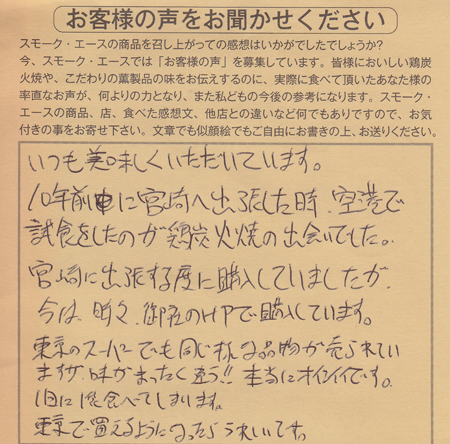 お客様の声をお聞かせください
スモーク・エースの商品を召し上がっての感想はいかがでしたでしょうか?
今、スモーク・エースでは「お客様の声」を募集しています。皆様においしい鶏炭
火焼や、こだわりの薫製品の味をお伝えするのに、実際に食べて頂いたあなた様の
率直なお声が、何よりの力となり、また私どもの今後の参考になります。スモーク・
エースの商品、店、食べた感想文、他店との違いなど何でもありですので、お気
付きの事をお寄せ下さい。文章でも似顔絵でもご自由にお書きの上、お送りください。
いつも美味しくいただいています。
10年前に宮崎へ出張した時、空港で
試食をしたのが鶏炭火焼の出会いでした。
宮崎に出張する度に購入していましたが、
今は、時々、御社のHPで購入しています。
東京のスーパーでも同じ様な品物が売られてい
ますが、味がまったく違う!!本当にオイシイです。
1日に1袋食べてしまいます。
東京で買えるようになったらうれしいです。